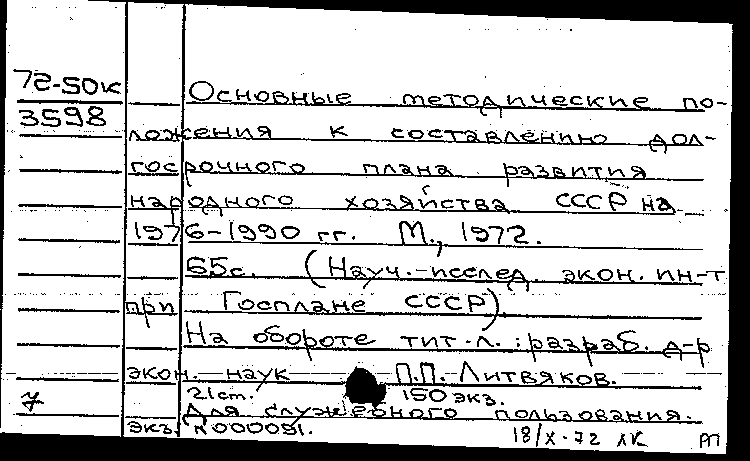 72-50к
3598
Основные методические по-
ложения к составлению дол-
госрочного плана развития
народного хозяйства СССР на
1976-1990 гг. М., 1972.
65с. (Науч.-исслед. экон. ин-т
при Госплане СССР).
На обороте тит.л.: разраб. д-р
экон. наук П.П. Литвяков.
21ст. 150 экз.
7 Для служебного пользования.
экз. N000091.
18/X-72 ЛК РП